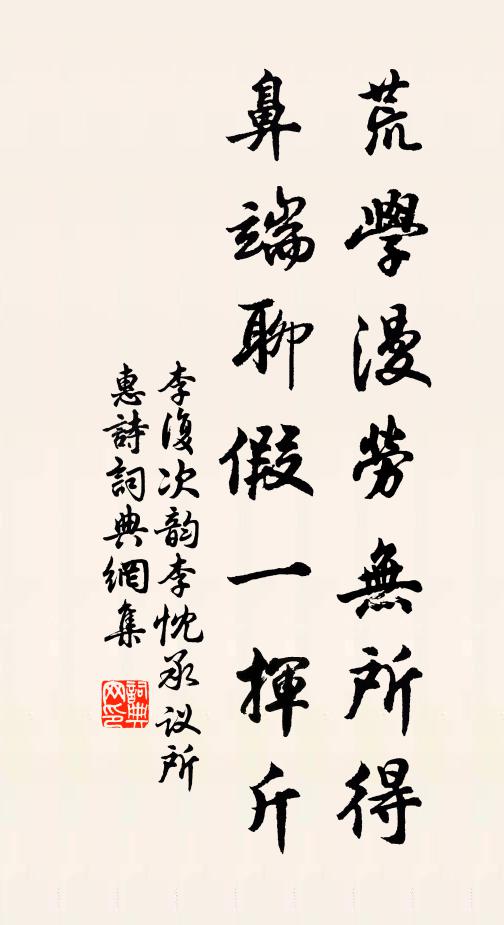 荒學漫勞無所得
鼻端聊假一揮斤
李復次韵李忱承议所
惠詩詞典網集
詞典
网印